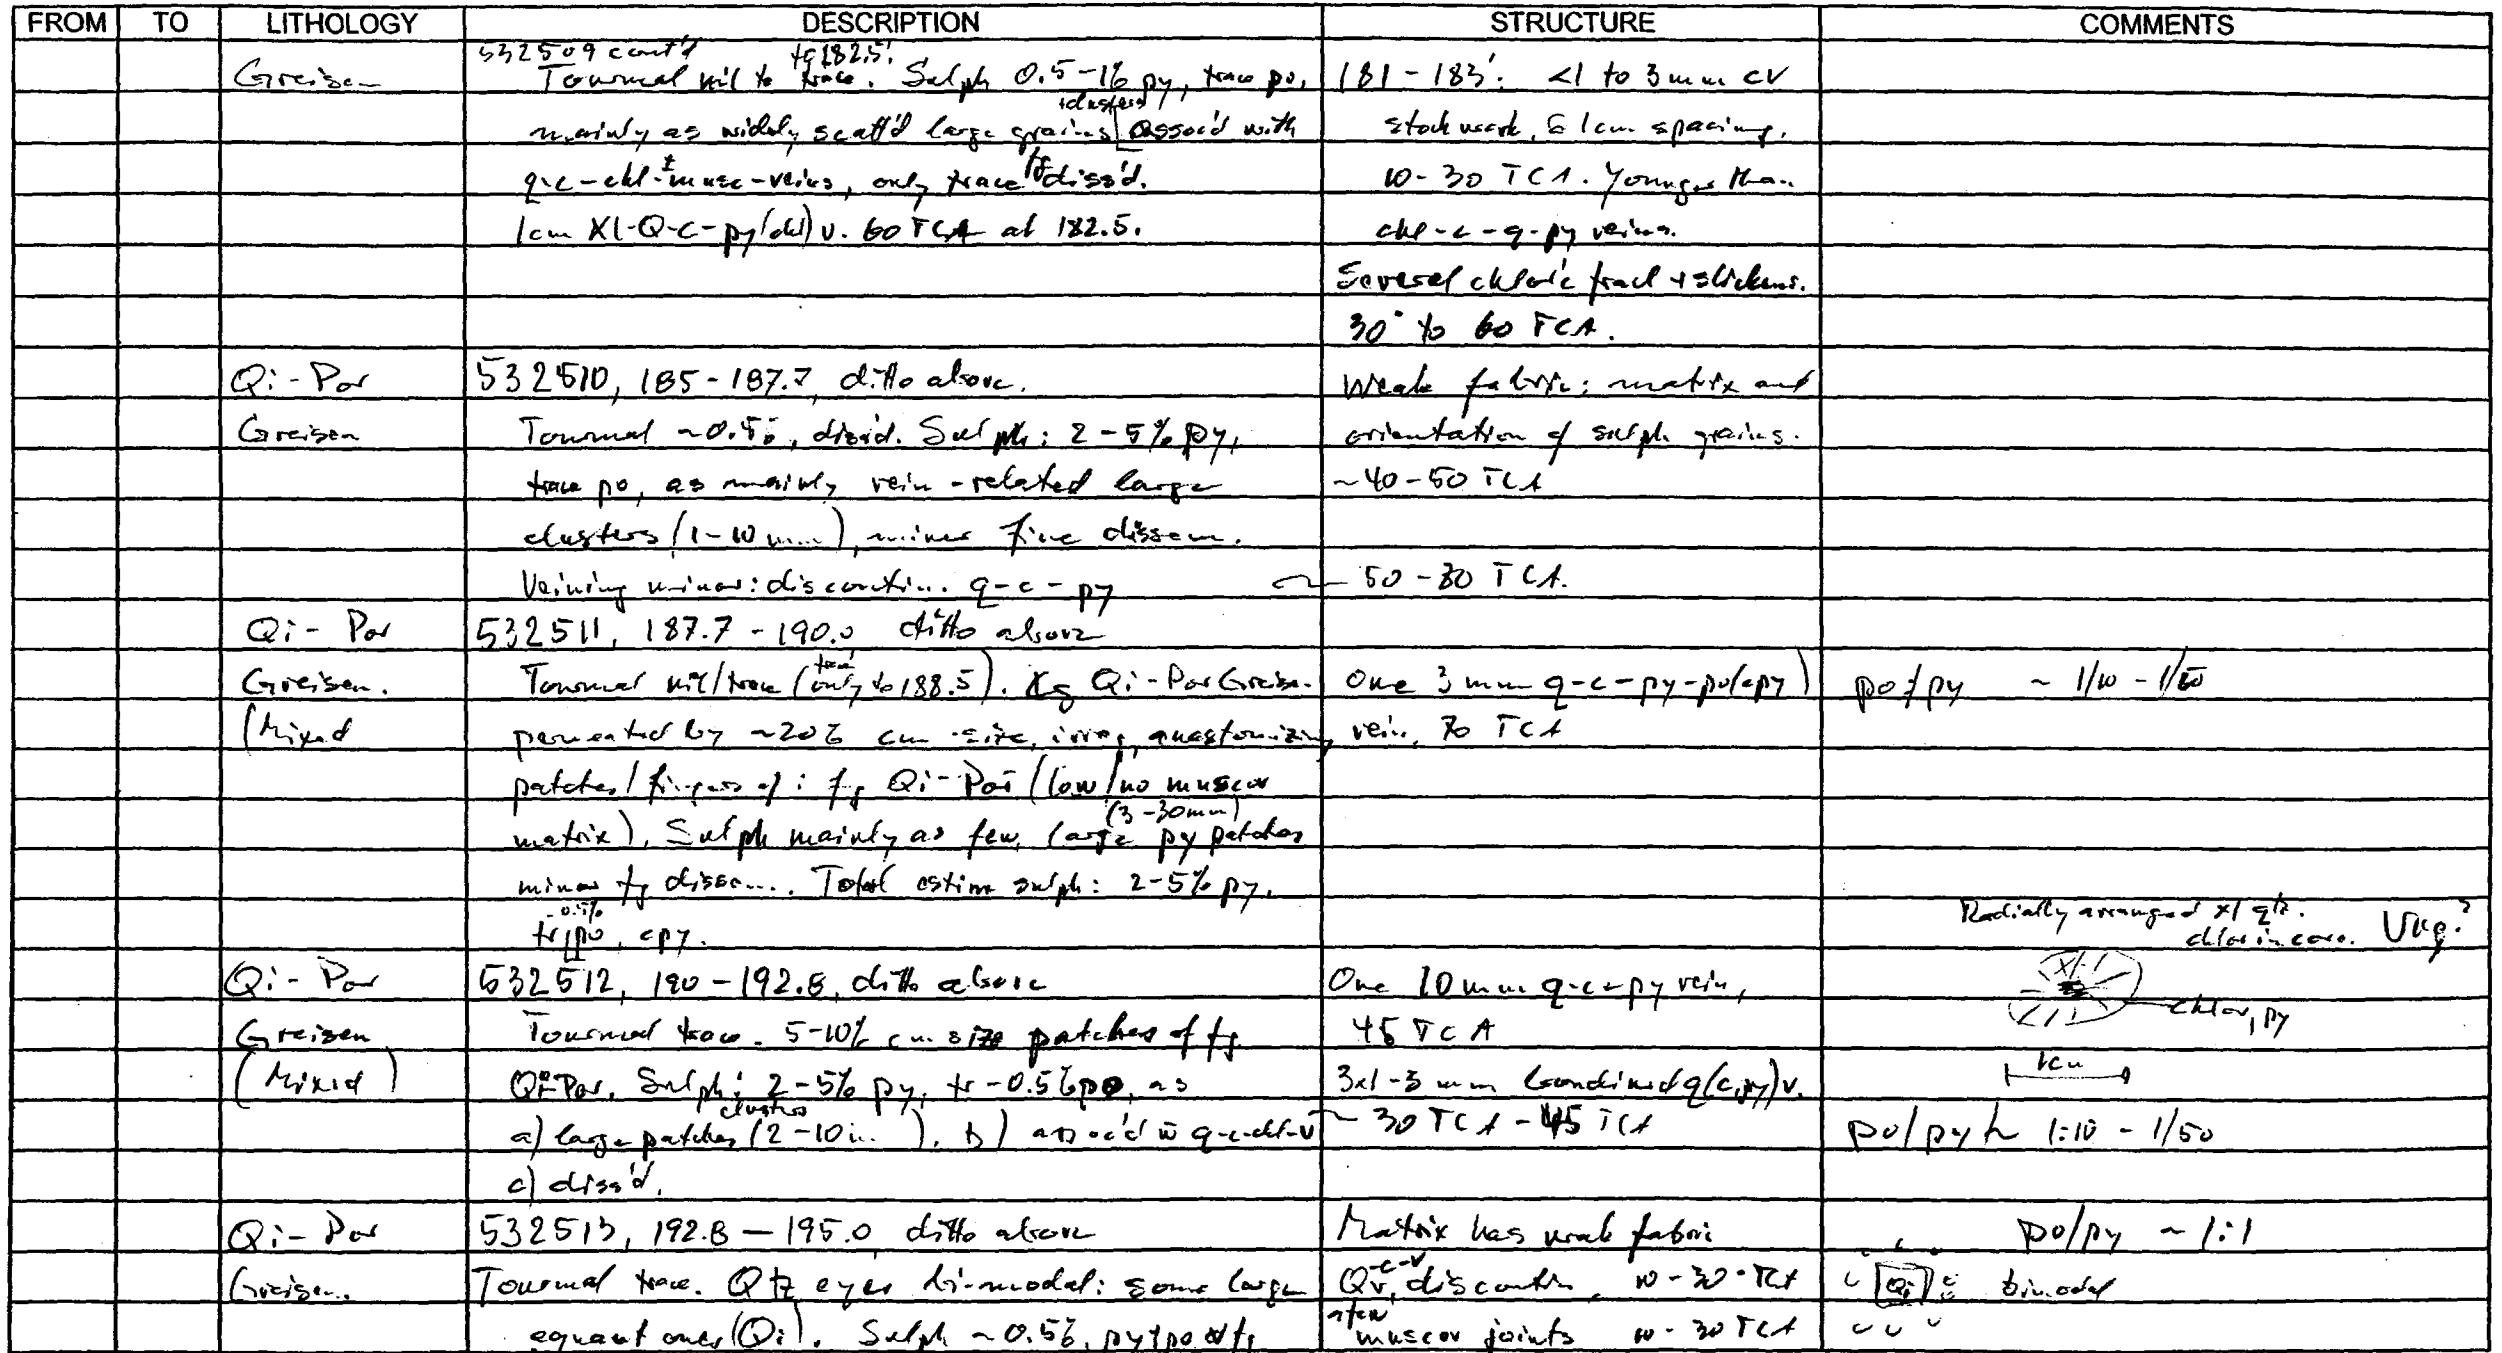 FROM TO LITHOLOGY DESCRIPTION STRUCTURE COMMENTS
532509 cont'd to 182.5'
Greisen Tourmal nil to trace. Sulph 0.5-1% py, trace po, 181-183': <1 to 3mm cv
+clusters
mainly as widely scatt'd large grains assoc'd with stockwork, 1cm spacing.
q-c-chl-±musc-veins, only trace fg diss'd. 10-30 TCA. Younger than
1cm Xl-Q-c-py(chl) v. 60 TCA at 182.5. chl-c-q-py veins.
Several chloric fract + slickens.
30° to 60 TCA.
Qi-Por 532510, 185-187.7, ditto above. Weak fabric: matrix and
Greisen Tourmal ~0.5%, diss'd. Sulph: 2-5% py, orientation of sulph grains.
trace po, as mainly vein-related large ~40-50 TCA
clusters (1-10mm), minor fine dissem.
Veining minor: discontin. q-c-py 50-30 TCA.
Qi-Por 532511, 187.7-190.0 ditto above
Greisen. Tourmal nil/trace (trace only to 188.5). fg Qi-Por Greisen. One 3mm q-c-py-po(cpy) po/py ~ 1/10 - 1/50
(Mixed permeated by ~20% cm-size, irreg, anastomizing vein, 70 TCA
patches/fingers of: fg Qi-Por (low/no muscov
(3-30mm)
matrix). Sulph mainly as few, large py patches
minor fg dissem. Total estim sulph: 2-5% py,
tr-0.5% po, cpy. Radially arranged xl qtz. chlor in core. Vug?
Qi-Por 532512, 190-192.8, ditto above One 10mm q-c-py vein, Xl
Greisen Tourmal trace. 5-10% cm size patches of fg 45 TCA chlor, py
(Mixed) Qi-Por. Sulph: 2-5% py, tr-0.5% po, as 3x1-3mm q(c,py)v. 1cm
clusters
a) large patches (2-10m ), b) assoc'd w q-c-chl-v ~30 TCA - 45 TCA po/py ~ 1:10 - 1/50
c) diss'd.
Qi-Por 532513, 192.8-195.0 ditto above Matrix has weak fabric po/py ~ 1:1
Greisen. Tourmal trace. Qtz eyes bi-modal: some large Qv, discontin, 10-30° TCA Qi bimodal
equant ones (Qi). Sulph ~0.5%, py+po fg a few muscov joints 10-30 TCA